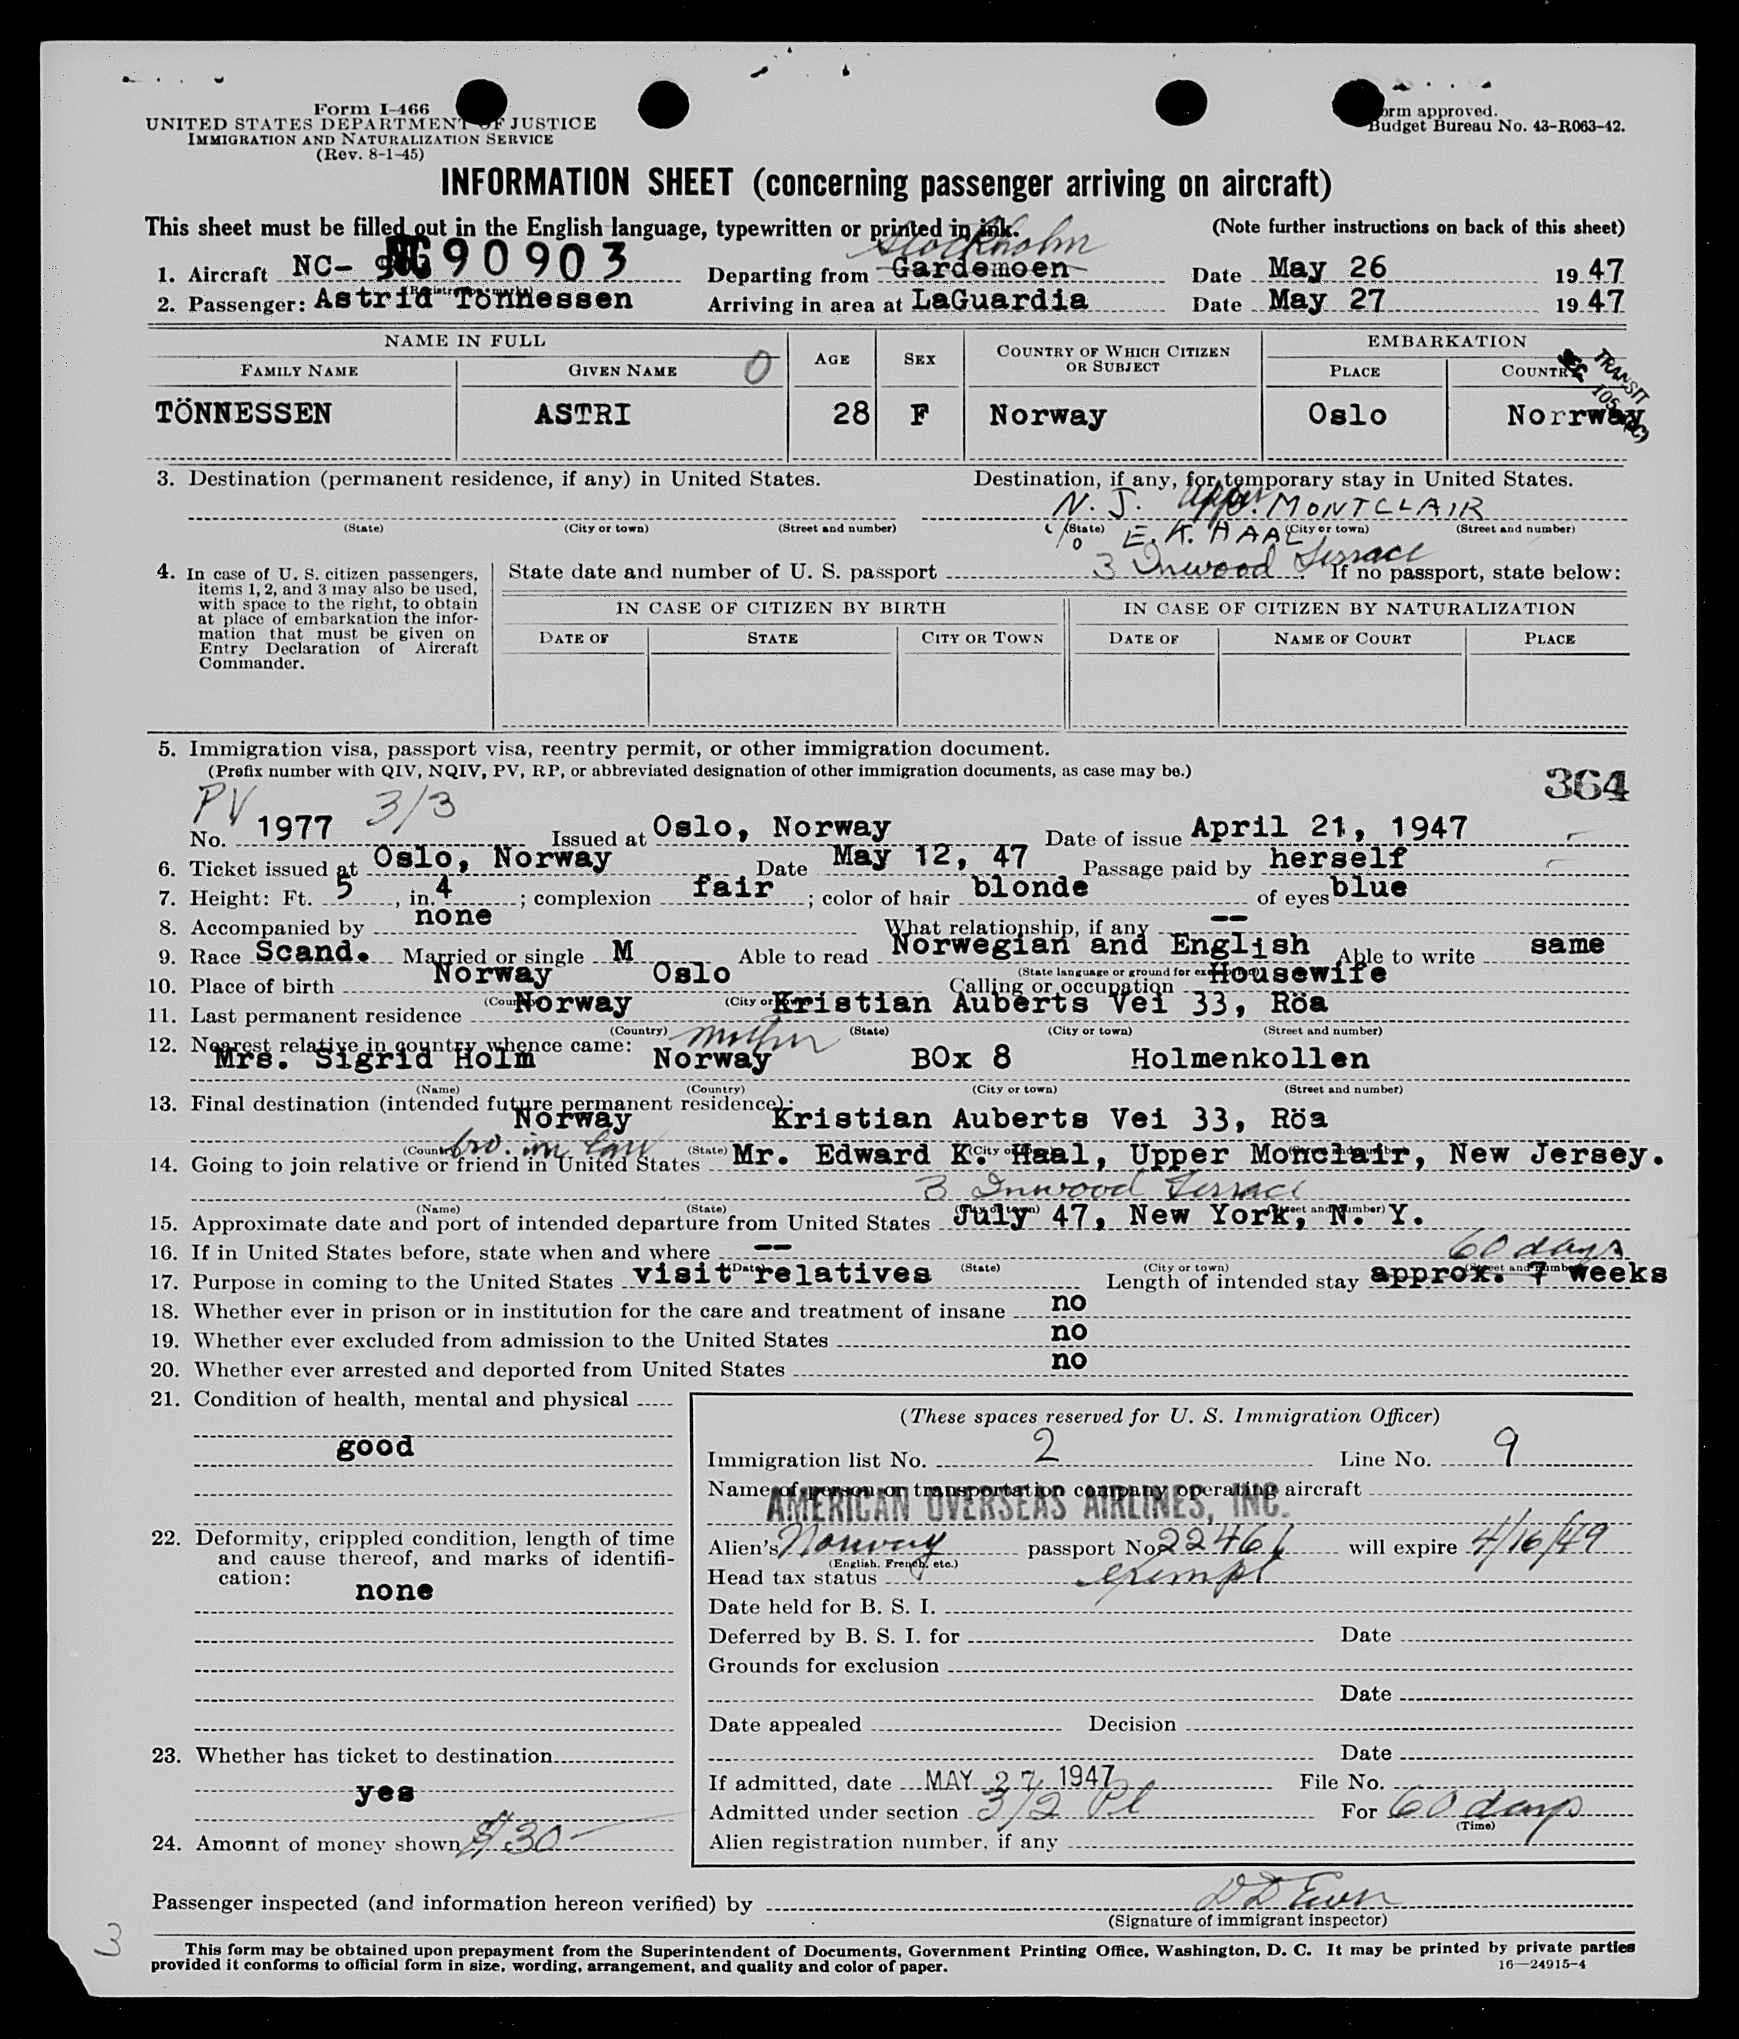 Form I-466
UNITED STATES DEPARTMENT OF JUSTICE
IMMIGRATION AND NATURALIZATION SERVICE
(Rev. 8-1-45)
Form approved.
Budget Bureau No. 43-R063-42.
INFORMATION SHEET (concerning passenger arriving on aircraft)
This sheet must be filled out in the English language, typewritten or printed in ink. (Note further instructions on back of this sheet)
Stockholm
1. Aircraft NC- 90903 Departing from Gardemoen Date May 26 1947
2. Passenger: Astrid Tönnessen Arriving in area at LaGuardia Date May 27 1947
NAME IN FULL AGE SEX COUNTRY OF WHICH CITIZEN OR SUBJECT EMBARKATION
FAMILY NAME GIVEN NAME 0 PLACE COUNTRY
TRANSIT
TÖNNESSEN ASTRI 28 F Norway Oslo Norrway
3. Destination (permanent residence, if any) in United States. Destination, if any, for temporary stay in United States.
N. J. Upper MONTCLAIR
(State) (City or town) (Street and number) (State) (City or town) (Street and number)
c/o E. K. HAAL
3 Inwood Terrace
4. In case of U. S. citizen passengers, items 1, 2, and 3 may also be used, with space to the right, to obtain at place of embarkation the information that must be given on Entry Declaration of Aircraft Commander.
State date and number of U. S. passport . If no passport, state below:
IN CASE OF CITIZEN BY BIRTH IN CASE OF CITIZEN BY NATURALIZATION
DATE OF STATE CITY OR TOWN DATE OF NAME OF COURT PLACE
5. Immigration visa, passport visa, reentry permit, or other immigration document.
(Prefix number with QIV, NQIV, PV, RP, or abbreviated designation of other immigration documents, as case may be.)
364
PV 3/3
No. 1977 Issued at Oslo, Norway Date of issue April 21, 1947
6. Ticket issued at Oslo, Norway Date May 12, 47 Passage paid by herself
7. Height: Ft. 5, in. 4; complexion fair; color of hair blonde of eyes blue
8. Accompanied by none What relationship, if any --
9. Race Scand. Married or single M Able to read Norwegian and English Able to write same
(State language or ground for exemption)
10. Place of birth Norway Oslo Calling or occupation Housewife
(Country) (City or town)
11. Last permanent residence Norway Kristian Auberts Vei 33, Röa
(Country) (State) (City or town) (Street and number)
12. Nearest relative in country whence came: mother
Mrs. Sigrid Holm Norway BOx 8 Holmenkollen
(Name) (Country) (City or town) (Street and number)
13. Final destination (intended future permanent residence):
Norway Kristian Auberts Vei 33, Röa
(Country) (State) (City or town) (Street and number)
bro. in law
14. Going to join relative or friend in United States Mr. Edward K. Haal, Upper Monclair, New Jersey.
3 Inwood Terrace
(Name) (State) (City or town) (Street and number)
15. Approximate date and port of intended departure from United States July 47, New York, N. Y.
16. If in United States before, state when and where --
(Date) (State) (City or town) (Street and number)
60 days
17. Purpose in coming to the United States visit relatives Length of intended stay approx. 7 weeks
18. Whether ever in prison or in institution for the care and treatment of insane no
19. Whether ever excluded from admission to the United States no
20. Whether ever arrested and deported from United States no
21. Condition of health, mental and physical
good
22. Deformity, crippled condition, length of time and cause thereof, and marks of identification:
none
23. Whether has ticket to destination
yes
24. Amount of money shown $30-
(These spaces reserved for U. S. Immigration Officer)
Immigration list No. 2 Line No. 9
Name of person or transportation company operating aircraft
AMERICAN OVERSEAS AIRLINES, INC.
Alien's Norway passport No. 22461 will expire 4/16/49
(English, French, etc.)
Head tax status exempt
Date held for B. S. I.
Deferred by B. S. I. for Date
Grounds for exclusion
Date
Date appealed Decision
Date
If admitted, date MAY 27 1947 File No.
Admitted under section 3/2 Pl For 60 days
(Time)
Alien registration number, if any
Passenger inspected (and information hereon verified) by
(Signature of immigrant inspector)
3
This form may be obtained upon prepayment from the Superintendent of Documents, Government Printing Office, Washington, D. C. It may be printed by private parties
provided it conforms to official form in size, wording, arrangement, and quality and color of paper.
16—24915-4